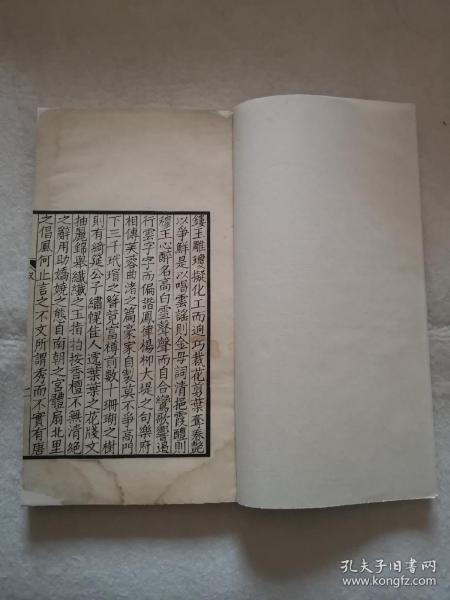 鏤玉雕瓊擬化工而迥巧裁花剪葉奪春艶
以爭鮮是以唱雲謠則金母詞清挹霞醴則
穆王心醉名高白雪聲聲而自合鸞歌響遏
行雲字字而偏諧鳳律楊柳大堤之句樂府
相傳芙蓉曲渚之篇豪家自製莫不爭高門
下三千玳瑁之簪競富樽前數十珊瑚之樹
則有綺筵公子繡幌佳人遞葉葉之花牋文
抽麗錦舉纖纖之玉指拍按香檀不無清絕
之辭用助嬌嬈之態自南朝之宮體扇北里
之倡風何止言之不文所謂秀而不實有唐
孔夫子旧書网
www.kongfz.com